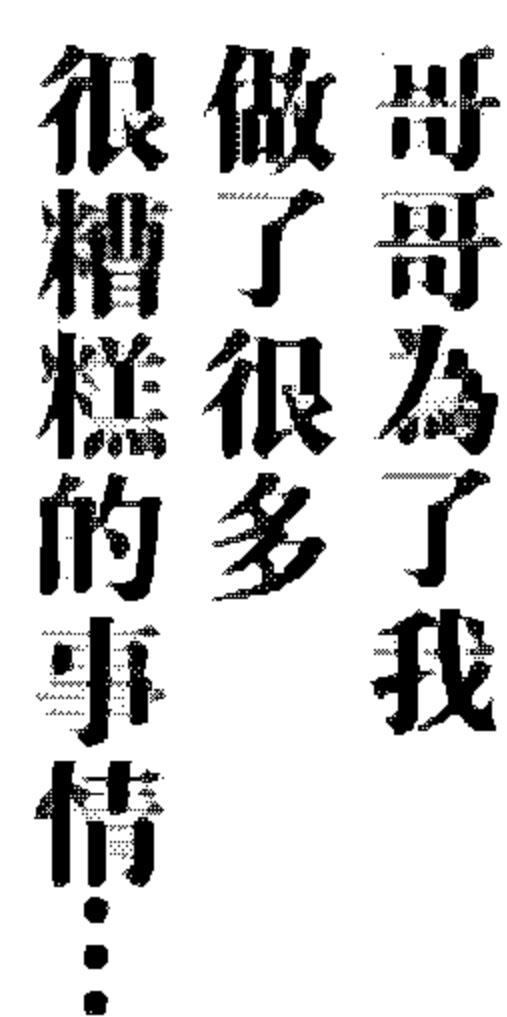 哥哥為了我
做了很多
很糟糕的事情…